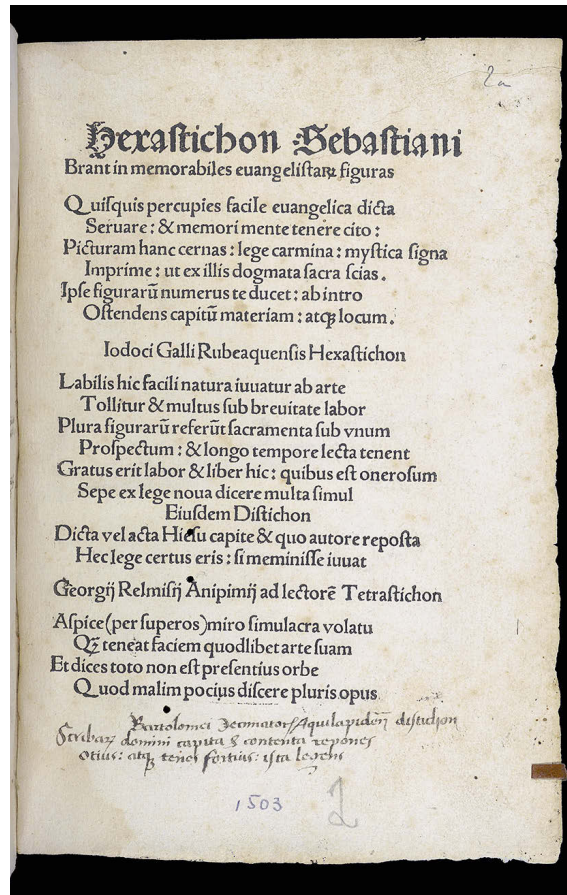 2a
Hexastichon Sebastiani
Brant in memorabiles euangelistaꝝ figuras
Quisquis percupies facile euangelica dicta
Seruare: & memori mente tenere cito:
Picturam hanc cernas: lege carmina: mystica signa
Imprime: ut ex illis dogmata sacra scias.
Ipse figurarū numerus te ducet: ab intro
Ostendens capitū materiam: atqꝫ locum.
Iodoci Galli Rubeaquensis Hexastichon
Labilis hic facili natura iuuatur ab arte
Tollitur & multus sub breuitate labor
Plura figurarū referūt sacramenta sub vnum
Prospectum: & longo tempore lecta tenent
Gratus erit labor & liber hic: quibus est onerosum
Sepe ex lege noua dicere multa simul
Eiusdem Distichon
Dicta vel acta Hiesu capite & quo autore reposta
Hec lege certus eris: si meminisse iuuat
Georgij Relmisij Anipimij ad lectorē Tetrastichon
Aspice (per superos) miro simulacra volatu
Qꝫ teneat faciem quodlibet arte suam
Et dices toto non est presentius orbe
Quod malim pocius discere pluris opus
Bartolomei distichon
domini capita & contenta repones
Otius: atqꝫ tenes fortius: ista legens
1503
2